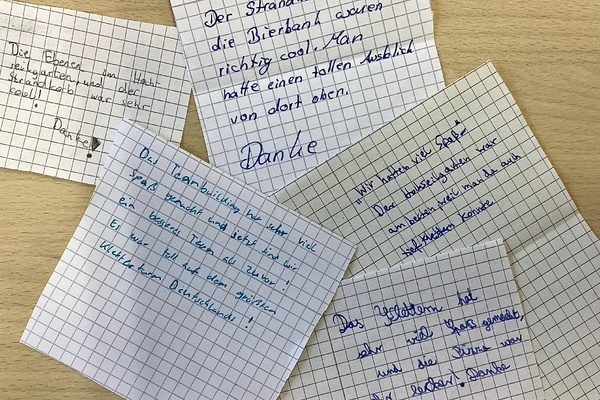 Die Ebenen im Hoch
seilgarten und der
Strandkorb war sehr
cool!!
Danke!
Der Strand
die Bierbank waren
richtig cool. Man
hatte einen tollen Ausblick
von dort oben.
Danke
Das Teambuilding hat sehr viel
Spaß gemacht und jetzt sind wir
ein besseres Team als zuvor!
Es war toll auf dem größten
Kletterturm Deutschlands!
"Wir hatten viel Spaß"
Der Hochseilgarten war
am besten weil man da auch
tief klettern konnte
Das Klettern hat
sehr viel Spaß gemacht,
und die Pizza war
lecker! Danke